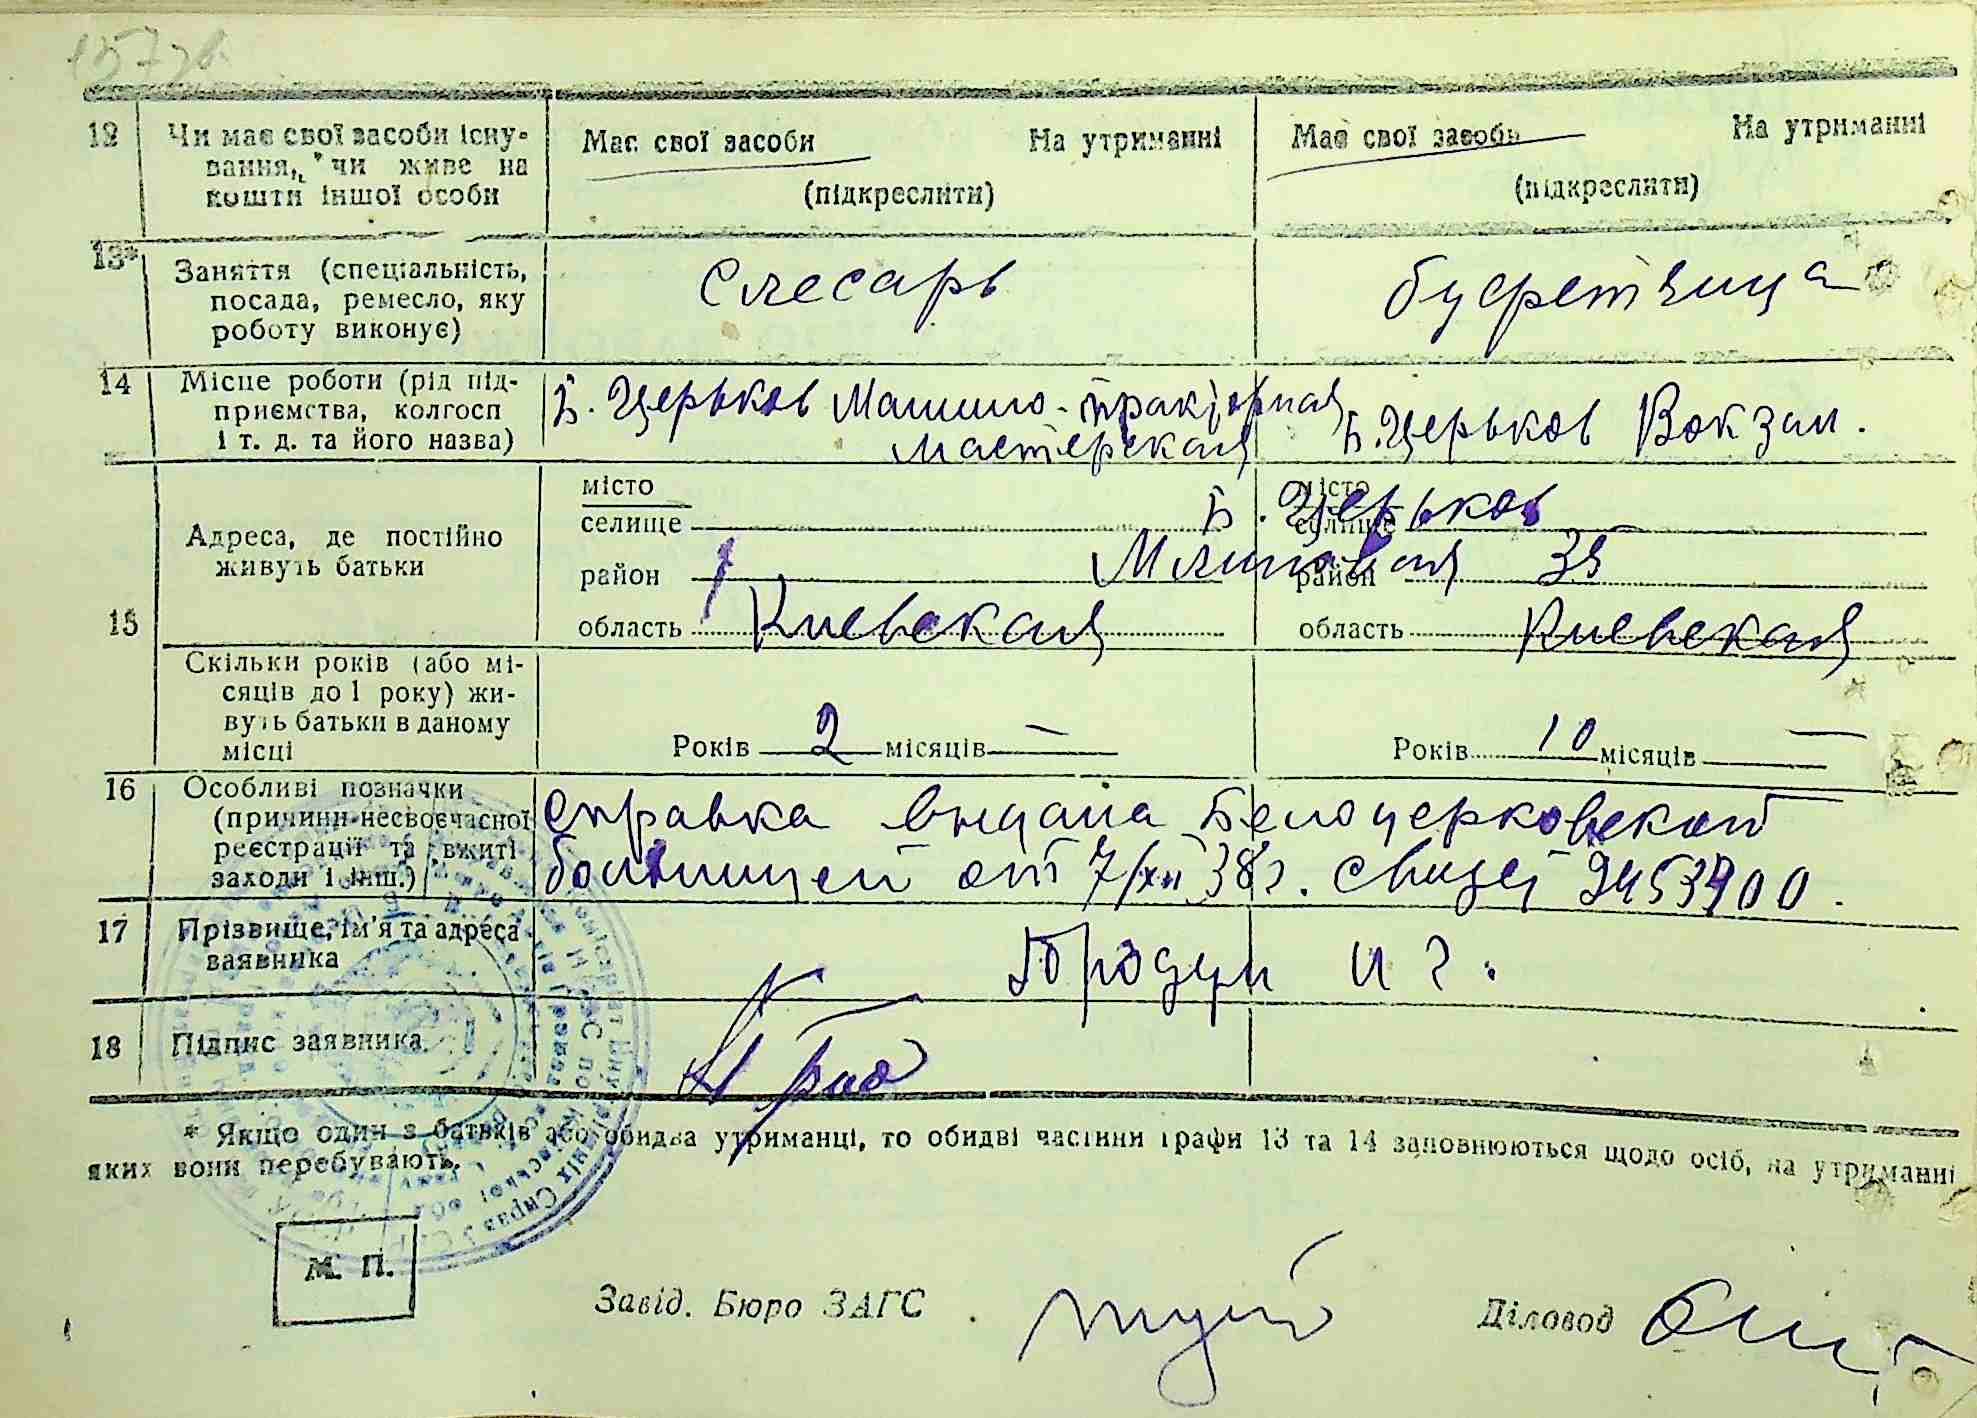 12 Чи має свої засоби існу-
вання, чи живе на
кошти іншої особи
Має свої засоби На утриманні
(підкреслити)
Має свої засоби На утриманні
(підкреслити)
13* Заняття (спеціальність,
посада, ремесло, яку
роботу виконує)
Слесарь
буфетчица
14 Місце роботи (рід під-
приємства, колгосп
і т. д. та його назва)
Б. Церьков Машино-тракторная
мастерская
Б. Церьков Вокзал.
15 Адреса, де постійно
живуть батьки
місто
селище
район
область Киевская
місто
селище
район
область Киевская
Б. Церьков
35
Скільки років (або мі-
сяців до 1 року) жи-
вуть батьки в даному
місці
Років 2 місяців —
Років 10 місяців —
16 Особливі позначки
(причини несвоєчасної
реєстрації та вжиті
заходи і інш.)
справка выдана Белоцерковской
больницей от 7/XII 38 г.
17 Прізвище, ім'я та адреса
заявника
И Г.
18 Підпис заявника
* Якщо один з батьків або обидва утриманці, то обидві частини графи 13 та 14 заповнюються щодо осіб, на утриманні
яких вони перебувають.
М. П.
Завід. Бюро ЗАГС
Діловод